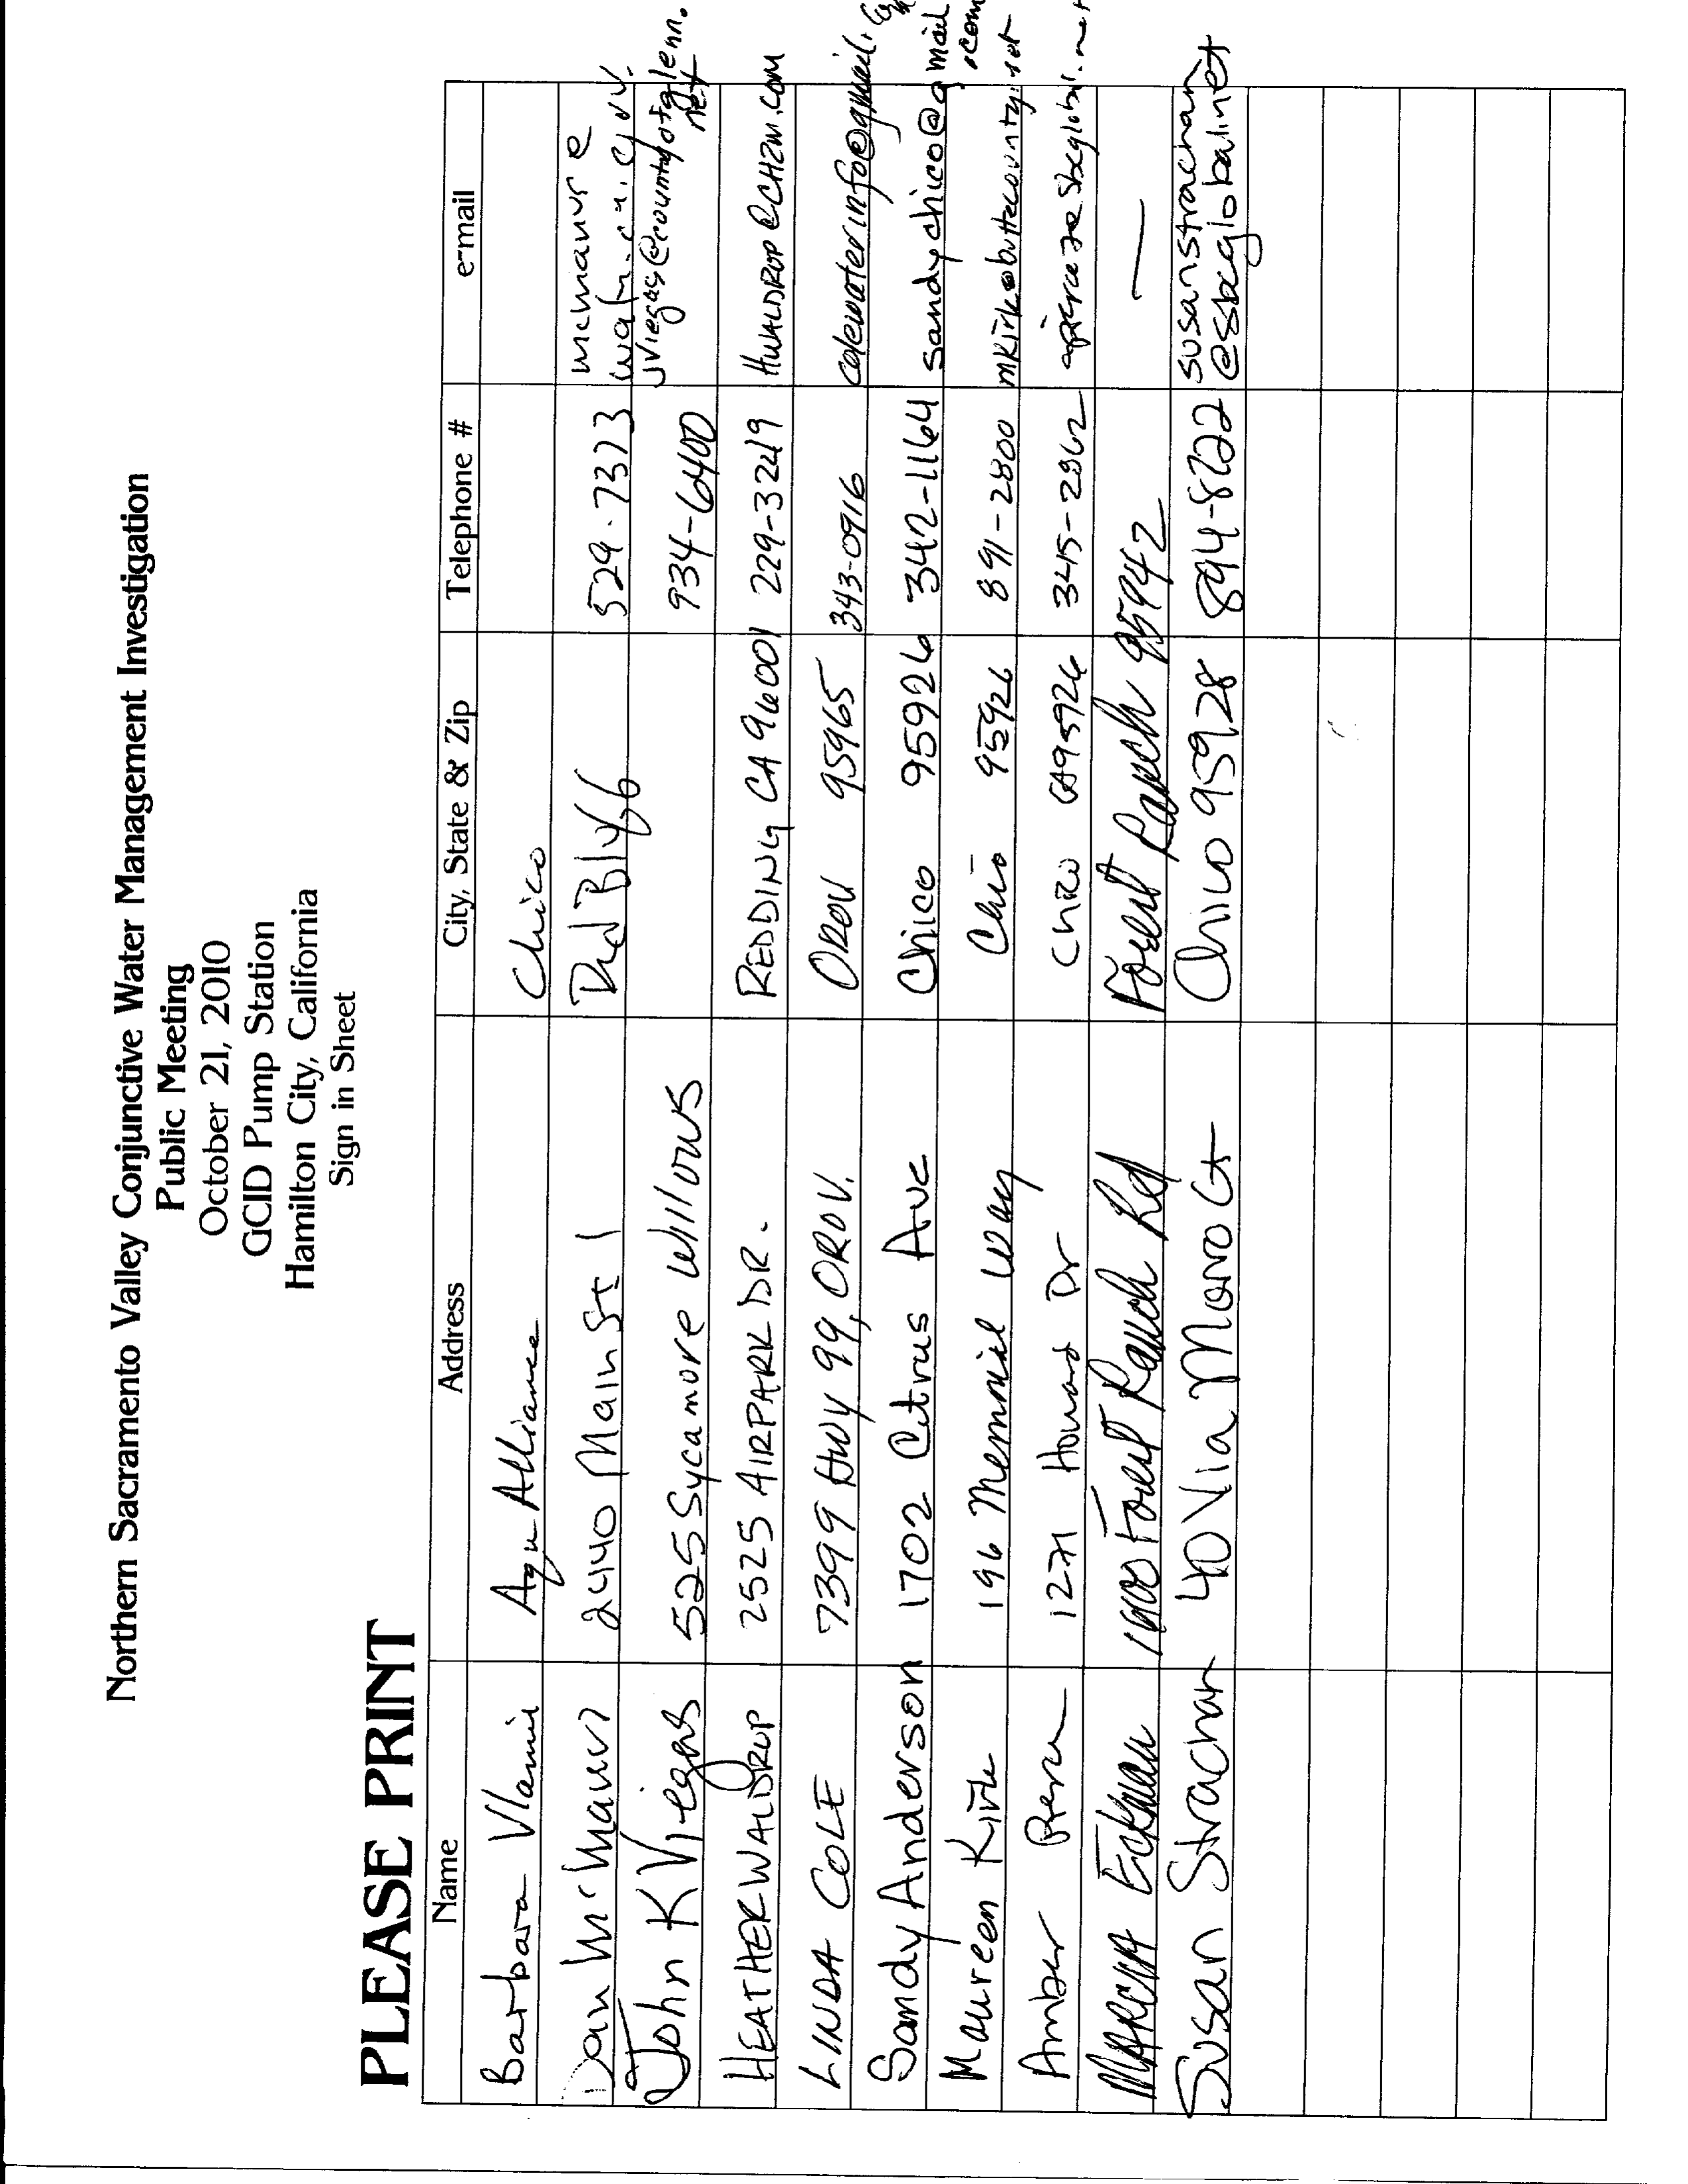 Northern Sacramento Valley Conjunctive Water Management Investigation
Public Meeting
October 21, 2010
GCID Pump Station
Hamilton City, California
Sign in Sheet
PLEASE PRINT
Name Address City, State & Zip Telephone # e-mail
Barbara Vlamis Aqu Alliance Chico
Dan McManus 2440 Main St Red Bluff 529-7373 mcmanus@water.ca.gov.
John K Viegas 525 Sycamore Willows 934-6400 jviegas@countyofglenn.net
HEATHER WALDROP 2525 AIRPARK DR. REDDING CA 96001 229-3249 HWALDROP@CH2M.COM
LINDA COLE 7399 HWY 99, OROV. OROV 95965 343-0916 colewaterinfo@gmail.com
Sandy Anderson 1702 Citrus Ave Chico 95926 342-1164 sandychico@gmail.com
Maureen Kirk 196 Memorial Way Chico 95926 891-2800 mkirk@buttecounty.net
Amber 1271 Howard Dr Chico CA 95926 345-2862
Forest Ranch Rd Forest Ranch 95942 —
Susan Strachan 40 Via Ct Chico 95928 894-8722 susanstrachan@sbcglobal.net